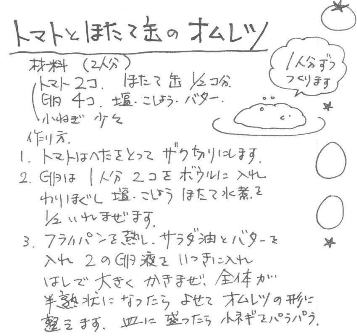 トマトとほたて缶のオムレツ
材料 (2人分)
トマト2コ. ほたて缶 1/2コ分.
卵 4コ. 塩・こしょう・バター.
小ねぎ 少々
1人分ずつ
つくります
作り方.
1. トマトはへたをとって ザク切りにします.
2. 卵は 1人分 2コを ボウルに入れ
わりほぐし 塩・こしょう ほたて水煮を
1/2 いれ まぜます.
3. フライパンを熱し. サラダ油とバターを
入れ 2の卵液と いっきに入れ
はしで 大きく かきまぜ. 全体が
半熟状に なったら よせて オムレツの形に
整えます. 皿に 盛ったら 小ネギをパラパラ.